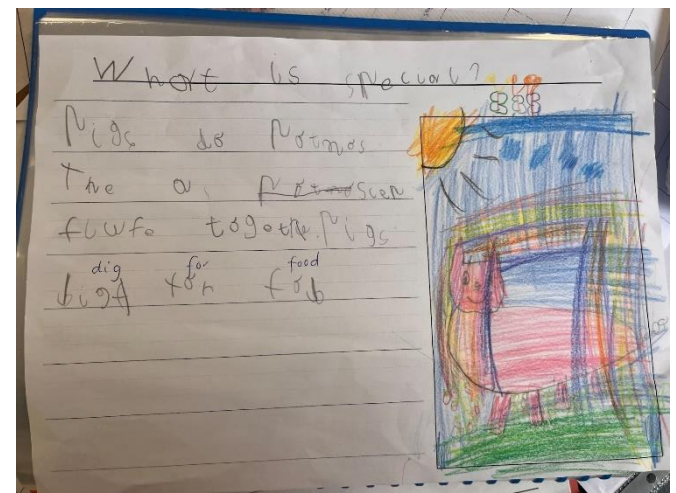 Whort is special?
Pigs do Potnos
The a scen
flwfe togethe. Pigs
dig for food
bigt for fob